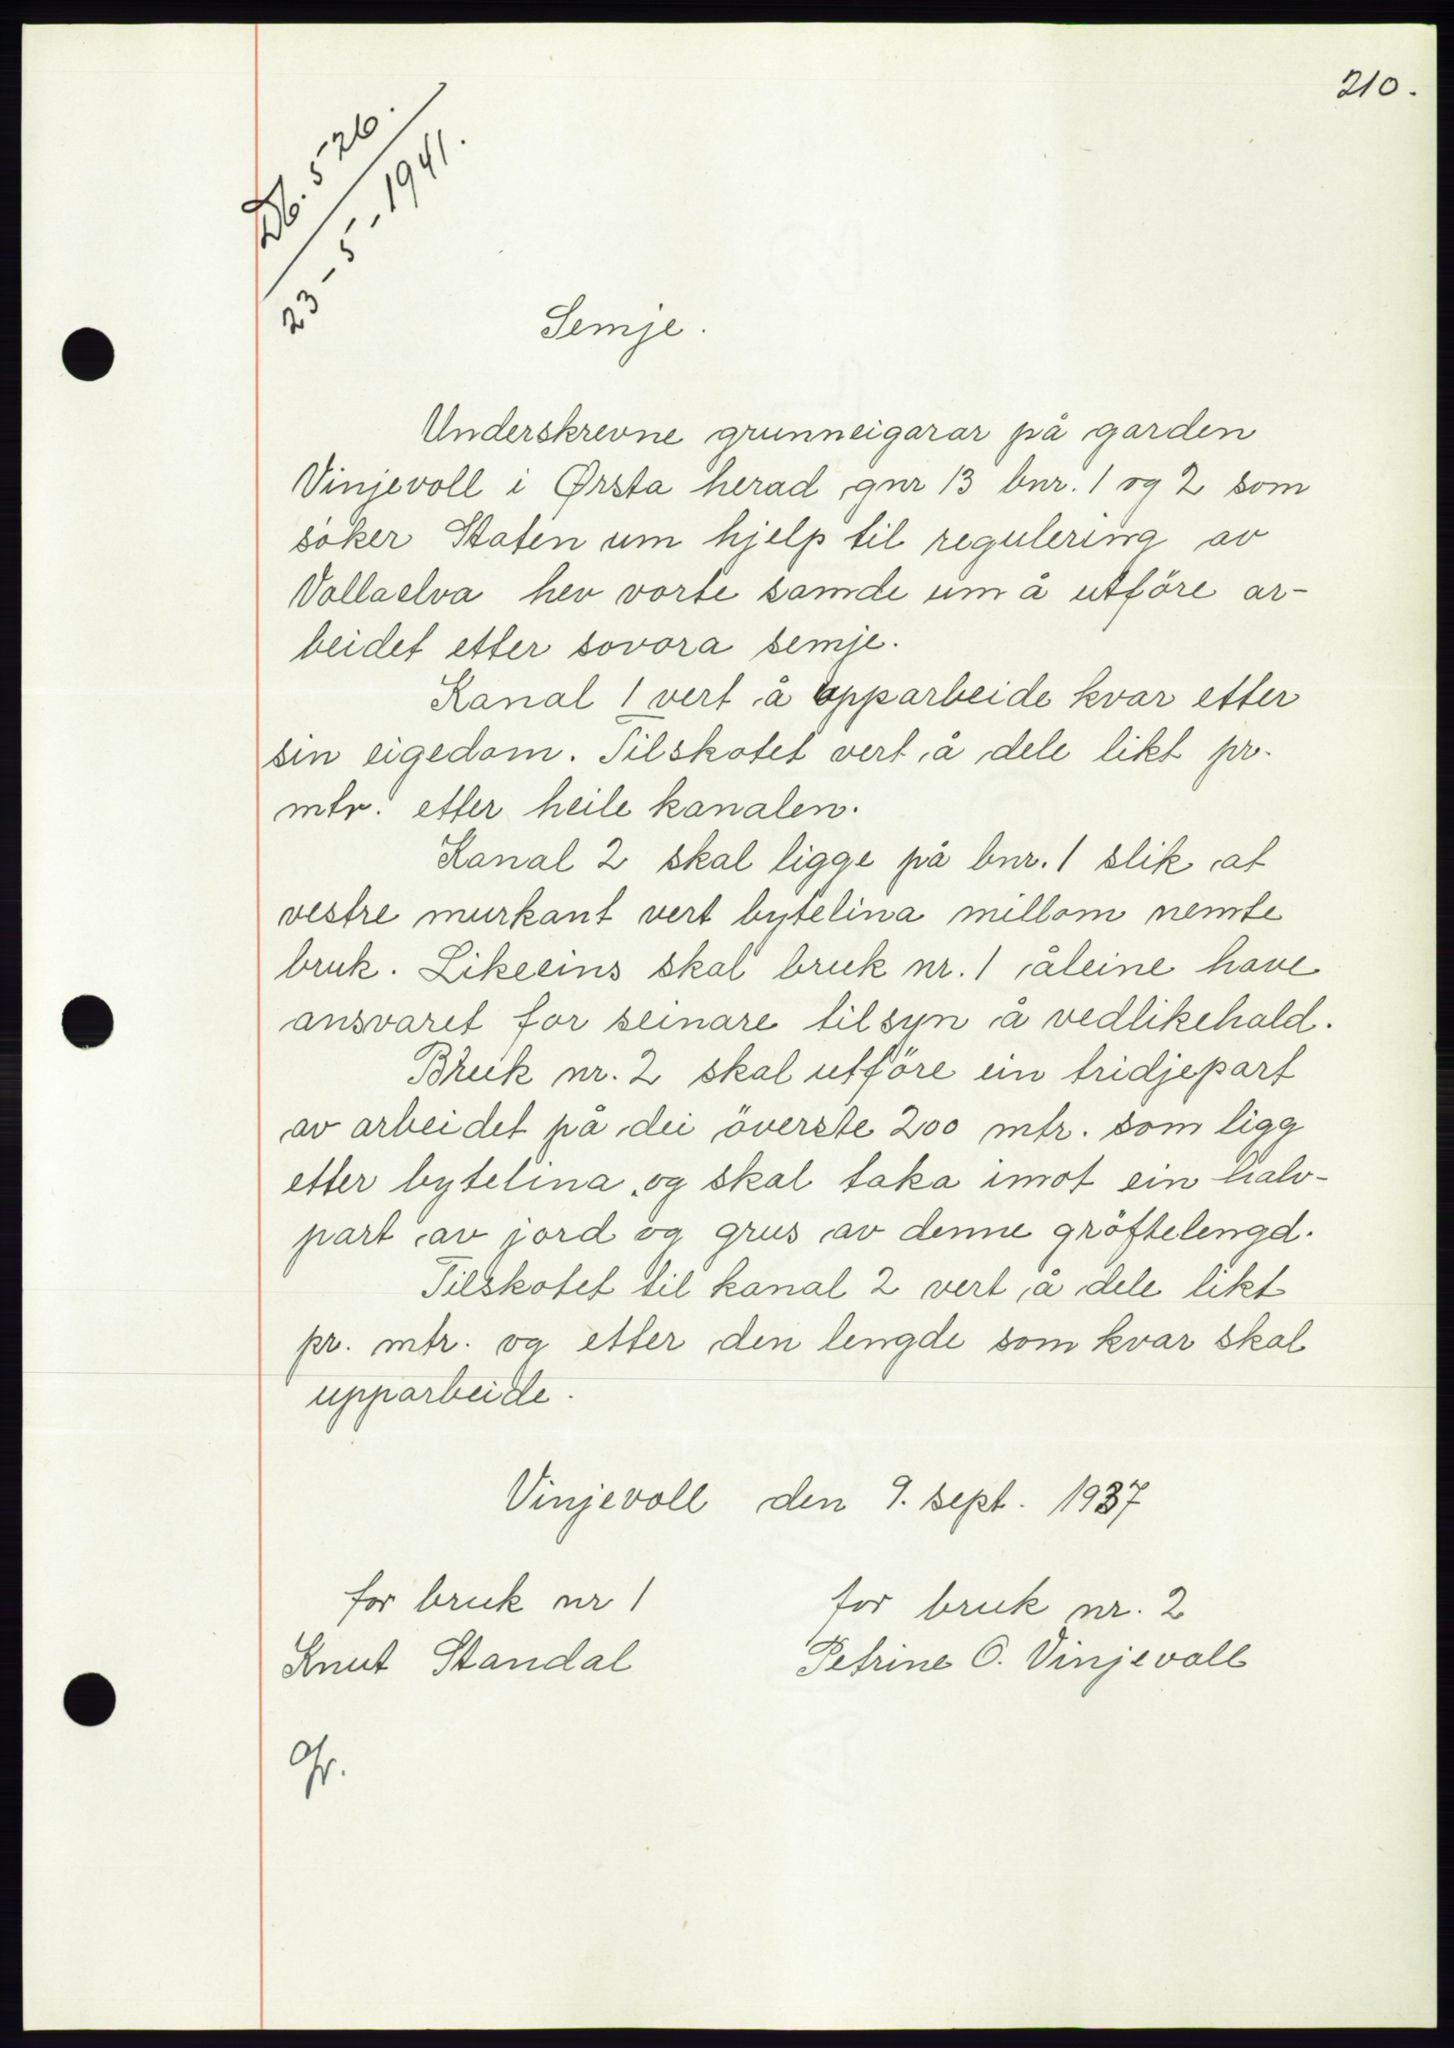 210.
Db. 526.
23-5-1941.
Semje.
Underskrevne grunneigarar på garden
Vinjevoll i Ørsta herad gnr 13 bnr. 1 og 2 som
söker Staten um hjelp til regulering av
Vollaelva hev vorte samde um å utföre ar-
beidet etter sovora semje.
Kanal 1 vert å upparbeide kvar etter
sin eigedom. Tilskotet vert å dele likt pr.
mtr. etter heile kanalen.
Kanal 2 skal ligge på bnr. 1 slik at
vestre murkant vert bytelina millom nemte
bruk. Likeeins skal bruk nr. 1 åleine have
ansvaret for seinare tilsyn å vedlikehald.
Bruk nr. 2 skal utföre ein tridjepart
av arbeidet på dei överste 200 mtr. som ligg
etter bytelina og skal taka imot ein halv-
part av jord og grus av denne gröftelengd.
Tilskotet til kanal 2 vert å dele likt
pr. mtr. og etter den lengde som kvar skal
upparbeide.
Vinjevoll den 9. sept. 1937
for bruk nr 1 for bruk nr. 2
Knut Standal Petrine O. Vinjevoll